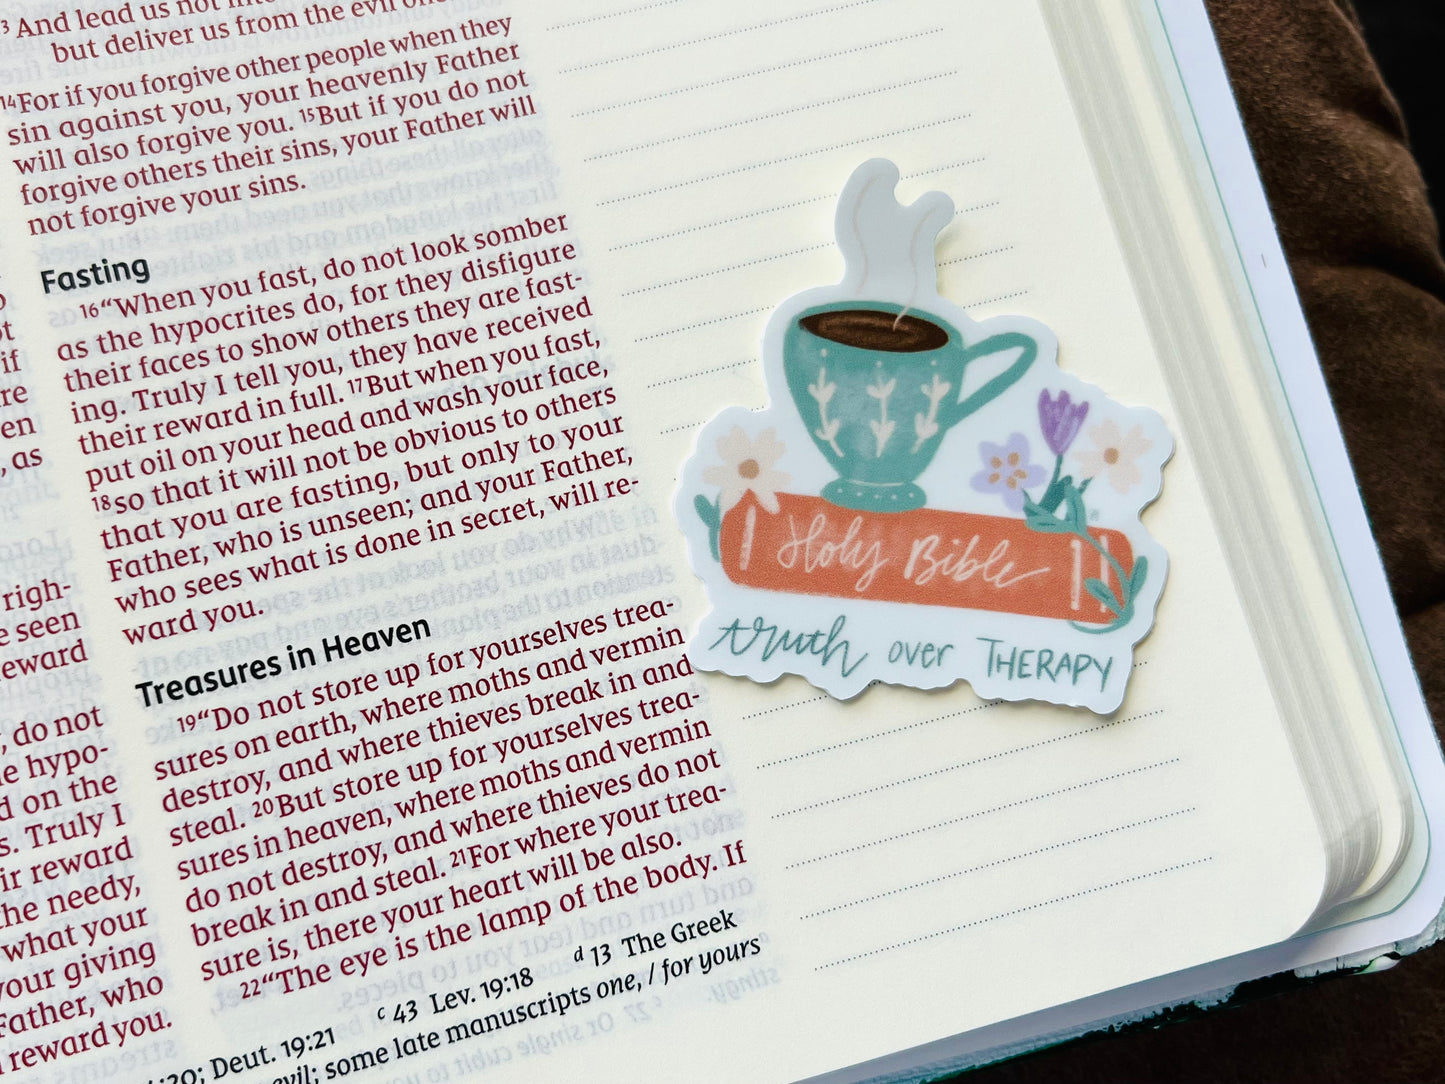 if
re
en
, as
righ-
e seen
eward
, do not
e hypo-
d on the
s. Truly I
ir reward
he needy,
what your
our giving
Father, who
reward you.
13 And lead us not
but deliver us from the evil one
14For if you forgive other people when they
sin against you, your heavenly Father
will also forgive you. 15But if you do not
forgive others their sins, your Father will
not forgive your sins.
Fasting
16“When you fast, do not look somber
as the hypocrites do, for they disfigure
their faces to show others they are fast-
ing. Truly I tell you, they have received
their reward in full. 17But when you fast,
put oil on your head and wash your face,
18so that it will not be obvious to others
that you are fasting, but only to your
Father, who is unseen; and your Father,
who sees what is done in secret, will re-
ward you.
Treasures in Heaven
19“Do not store up for yourselves trea-
sures on earth, where moths and vermin
destroy, and where thieves break in and
steal. 20But store up for yourselves trea-
sures in heaven, where moths and vermin
do not destroy, and where thieves do not
break in and steal. 21For where your trea-
sure is, there your heart will be also.
22“The eye is the lamp of the body. If
:20; Deut. 19:21 c 43 Lev. 19:18 d 13 The Greek
evil; some late manuscripts one, / for yours
Holy Bible
truth over THERAPY